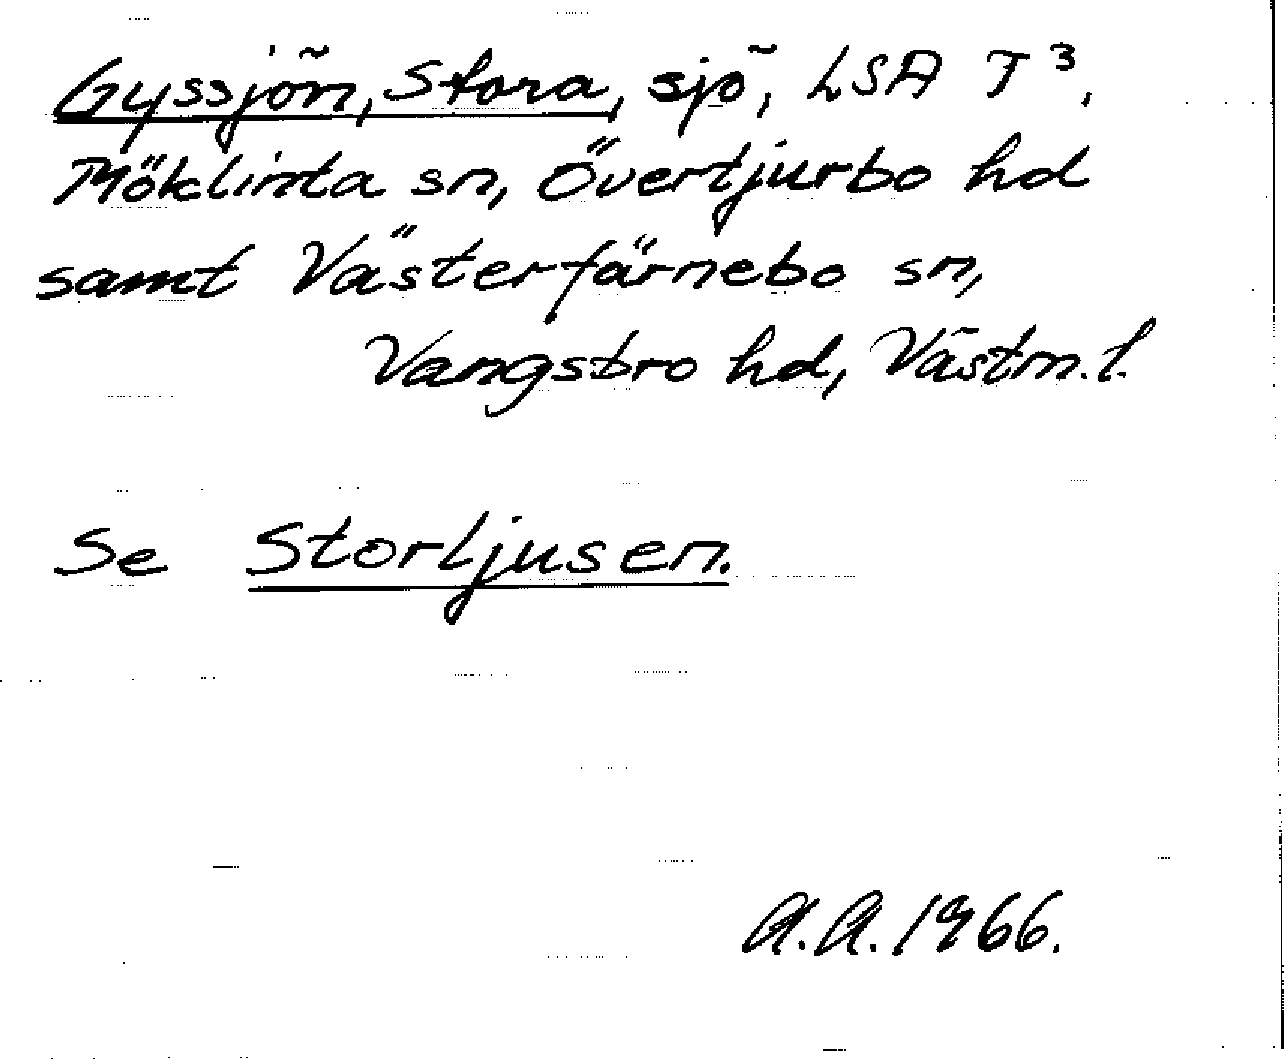 Gyssjön, Stora, sjö, LSA T³,
Möklinta sn, Övertjurbo hd
samt Västerfärnebo sn,
Vangsbro hd, Västm.l.
Se Storljusen.
A.A. 1966.